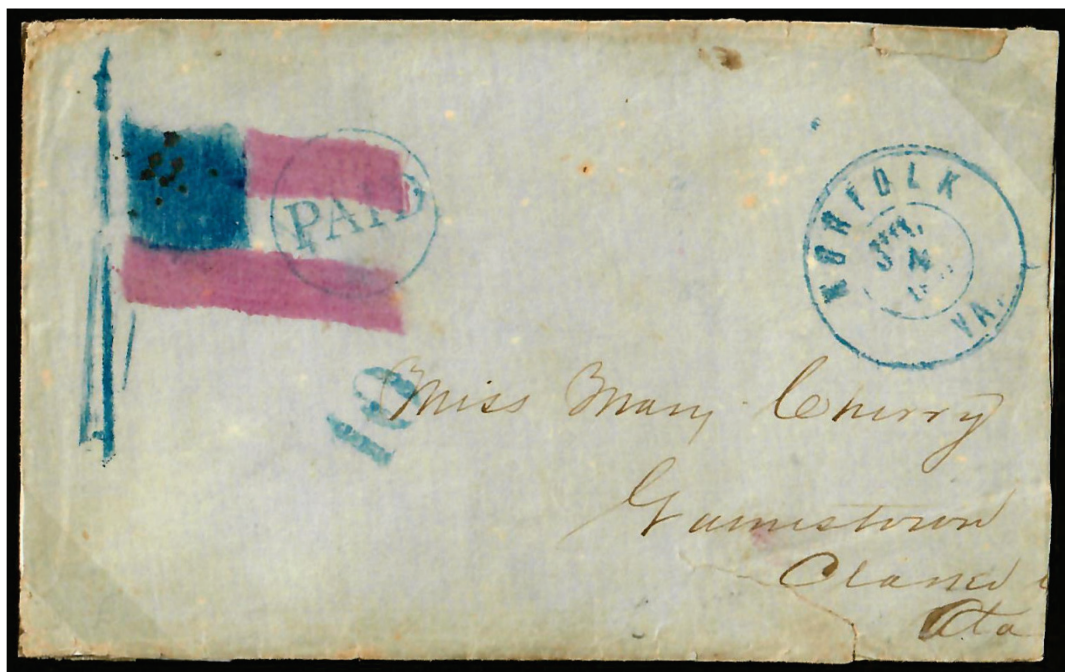 PAID
NORFOLK
JUL
VA.
10
Miss Mary Cherry
Gainestown
Ala